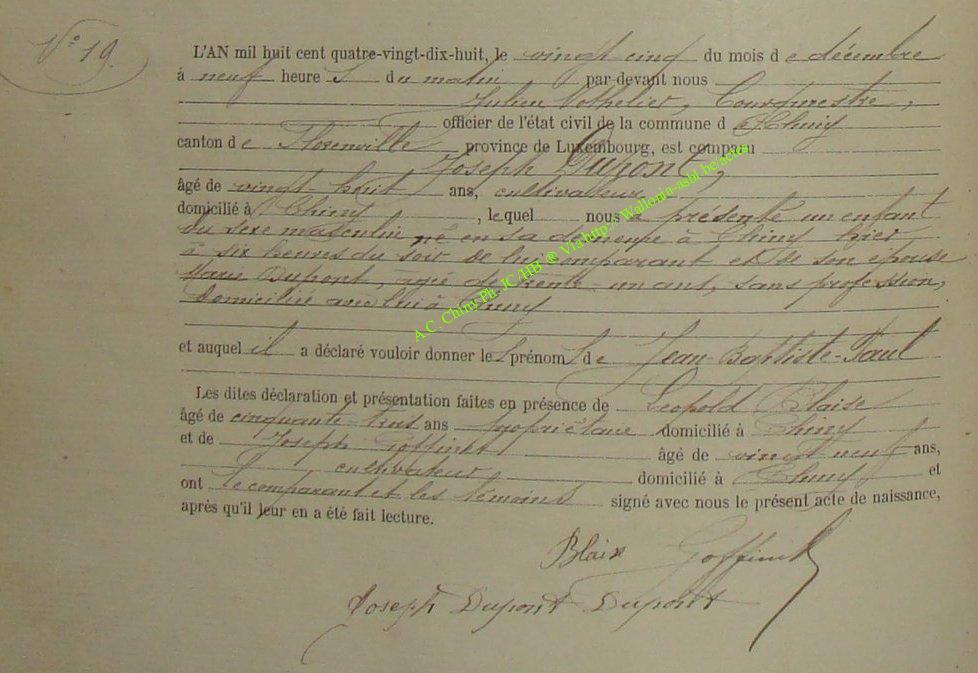 N° 19.
L'AN mil huit cent quatre-vingt-dix-huit, le vingt cinq du mois de décembre
à neuf heures du matin par devant nous
Julien Bourgmestre,
officier de l'état civil de la commune de Chiny
canton de Florenville province de Luxembourg, est comparu
Joseph Dupont,
âgé de vingt-huit ans, cultivateur
domicilié à Chiny, lequel nous a présenté un enfant
du sexe masculin né en sa demeure à Chiny hier
à six heures du soir de lui comparant et de son épouse
Marie Dupont, agée de trente-un ans, sans profession,
domiciliée avec lui à Chiny
et auquel il a déclaré vouloir donner les prénoms de Jean-Baptiste-Paul
Les dites déclaration et présentation faites en présence de Léopold Blaise
âgé de cinquante-trois ans propriétaire domicilié à Chiny
et de Joseph Goffinet âgé de vingt neuf ans,
cultivateur domicilié à Chiny et
ont le comparant et les témoins signé avec nous le présent acte de naissance,
après qu'il leur en a été fait lecture.
Blaise Goffinet
Joseph Dupont Dupont
A.C. Chiny Ph. JC/HB @ Via http://Wallonia-asbl.be/actes